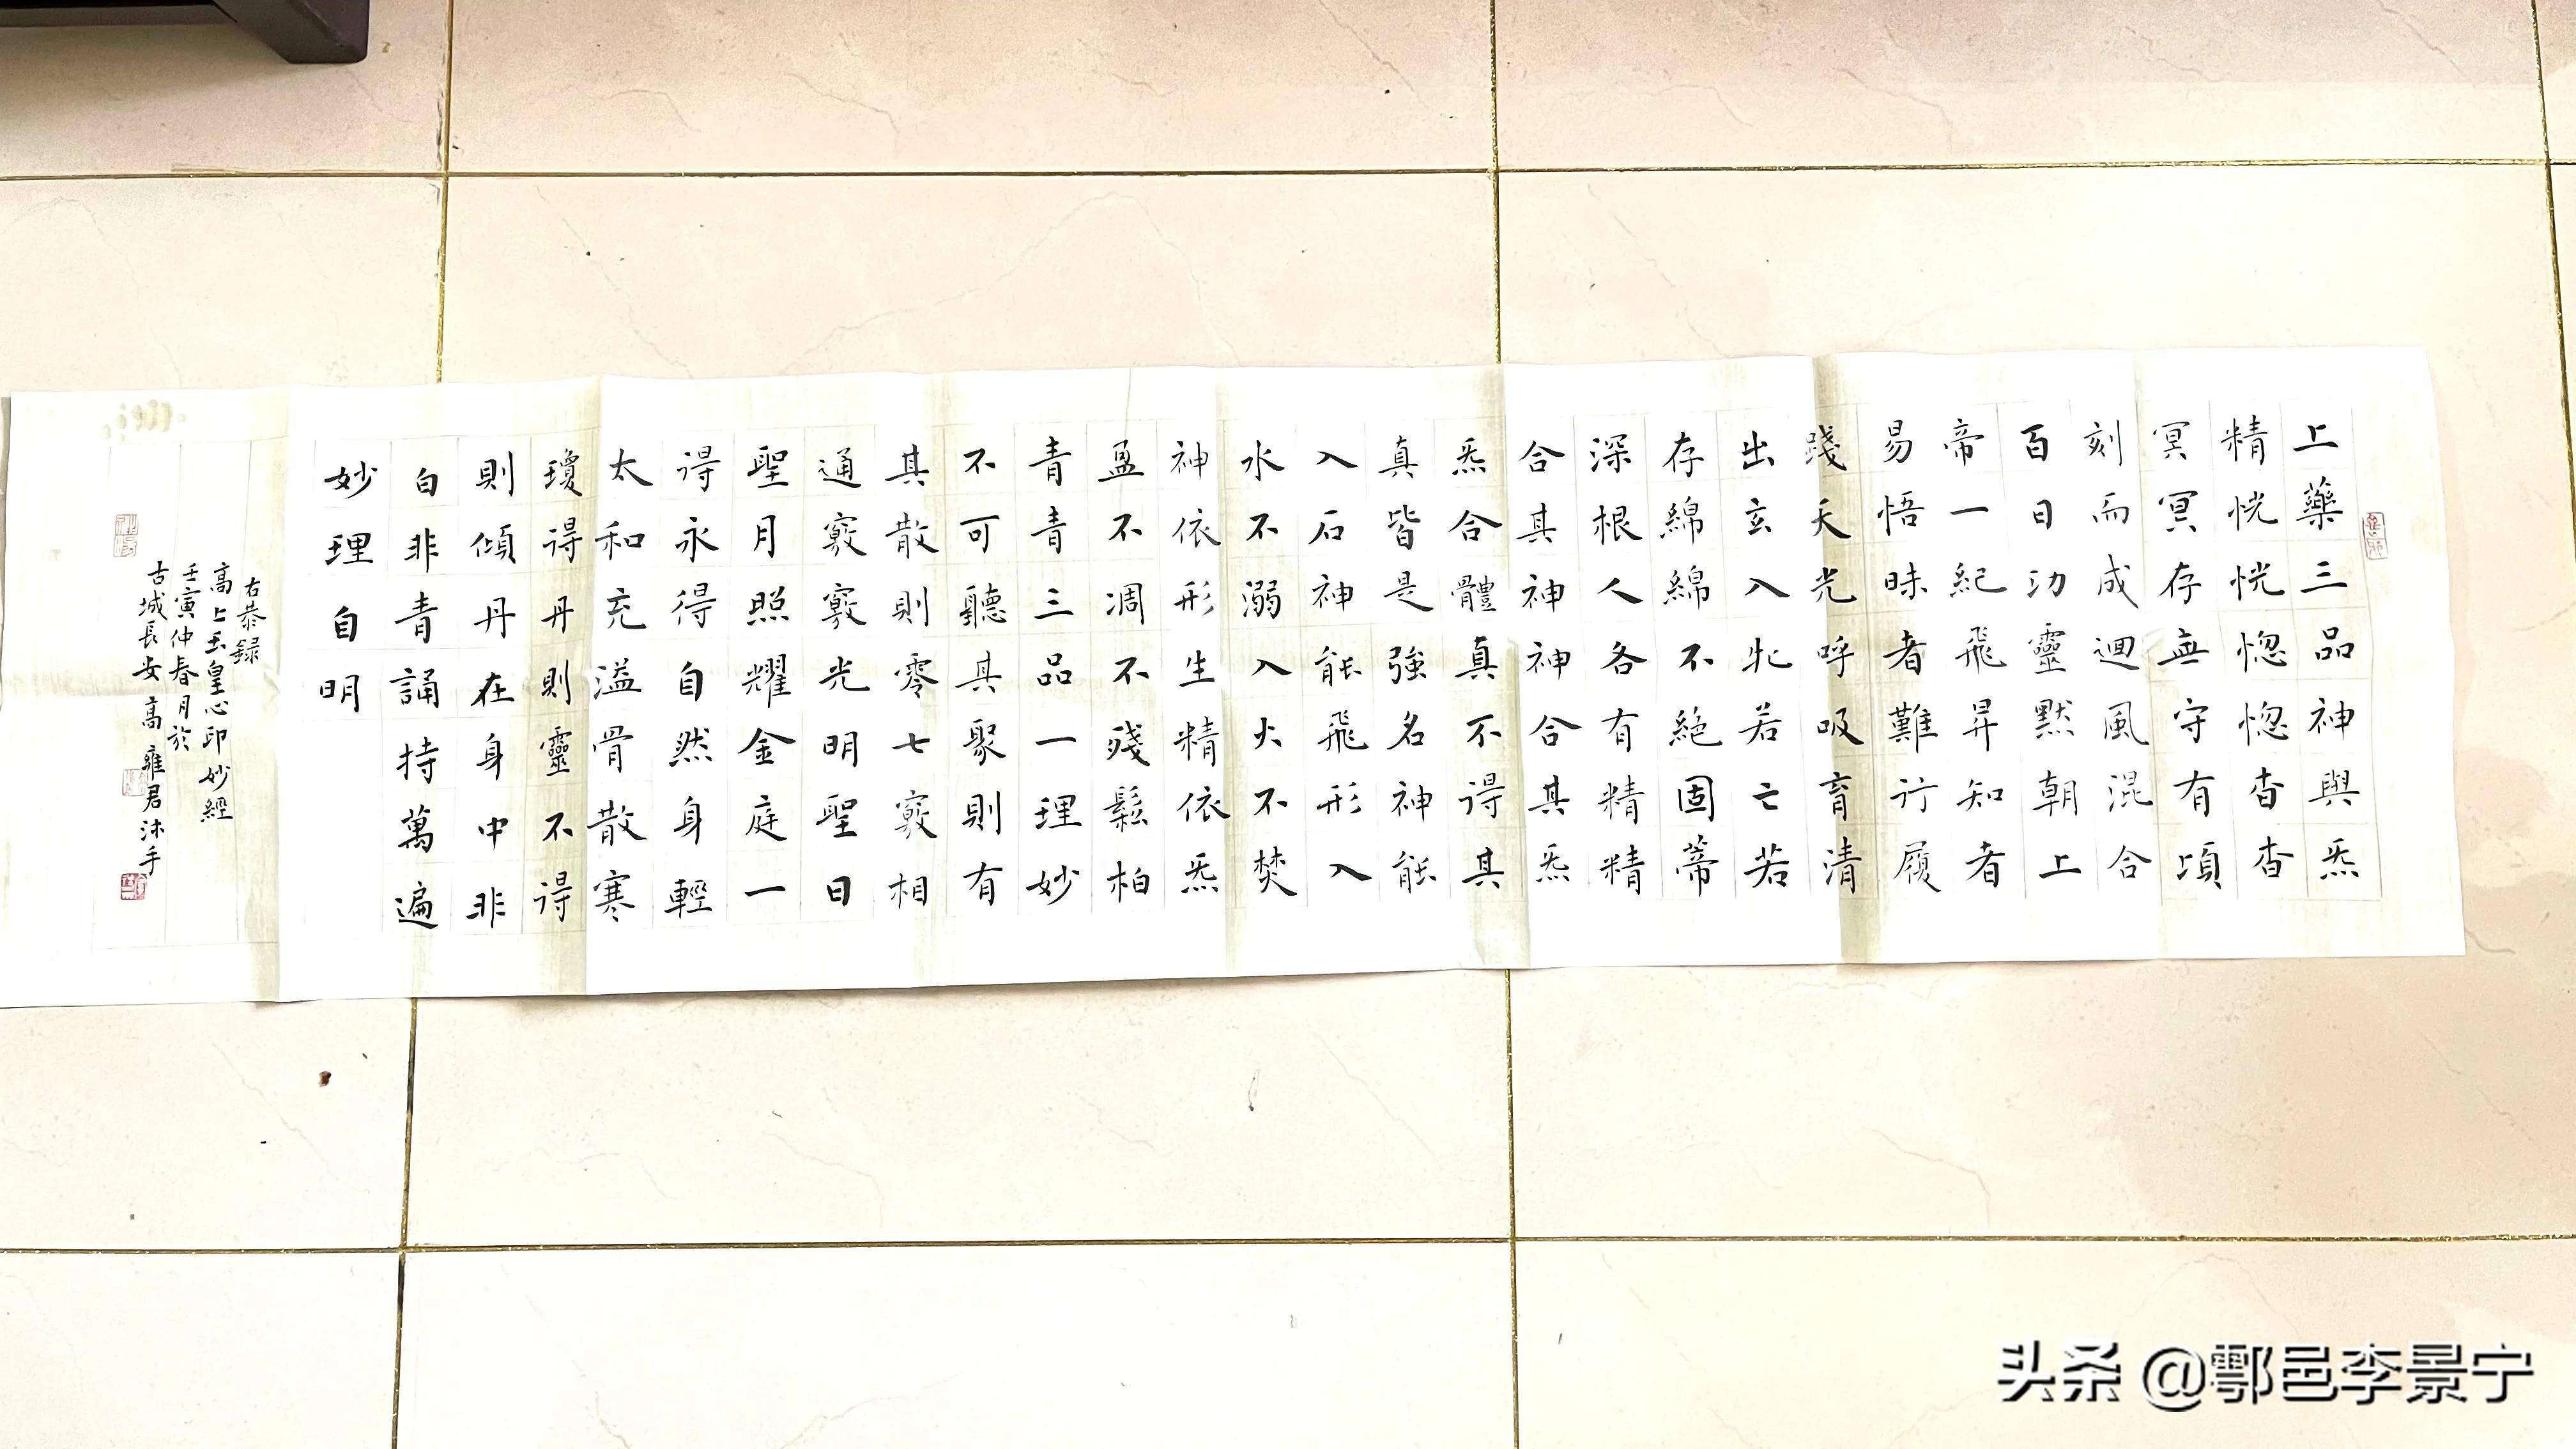 上藥三品神與炁
精恍恍惚惚杳杳
冥冥存無守有頃
刻而成迴風混合
百日功靈默朝上
帝一紀飛昇知者
易悟昧者難行履
踐天光呼吸育清
出玄入牝若亡若
存綿綿不絕固蒂
深根人各有精精
合其神神合其炁
炁合體真不得其
真皆是強名神能
入石神能飛形入
水不溺入火不焚
神依形生精依炁
盈不凋不殘鬆柏
青青三品一理妙
不可聽其聚則有
其散則零七竅相
通竅竅光明聖日
聖月照耀金庭一
得永得自然身輕
太和充溢骨散寒
瓊得丹則靈不得
則傾丹在身中非
白非青誦持萬遍
妙理自明
右恭録
高上玉皇心印妙經
壬寅仲春月於
古城長安高雍君沐手
头条 @鄠邑李景宁